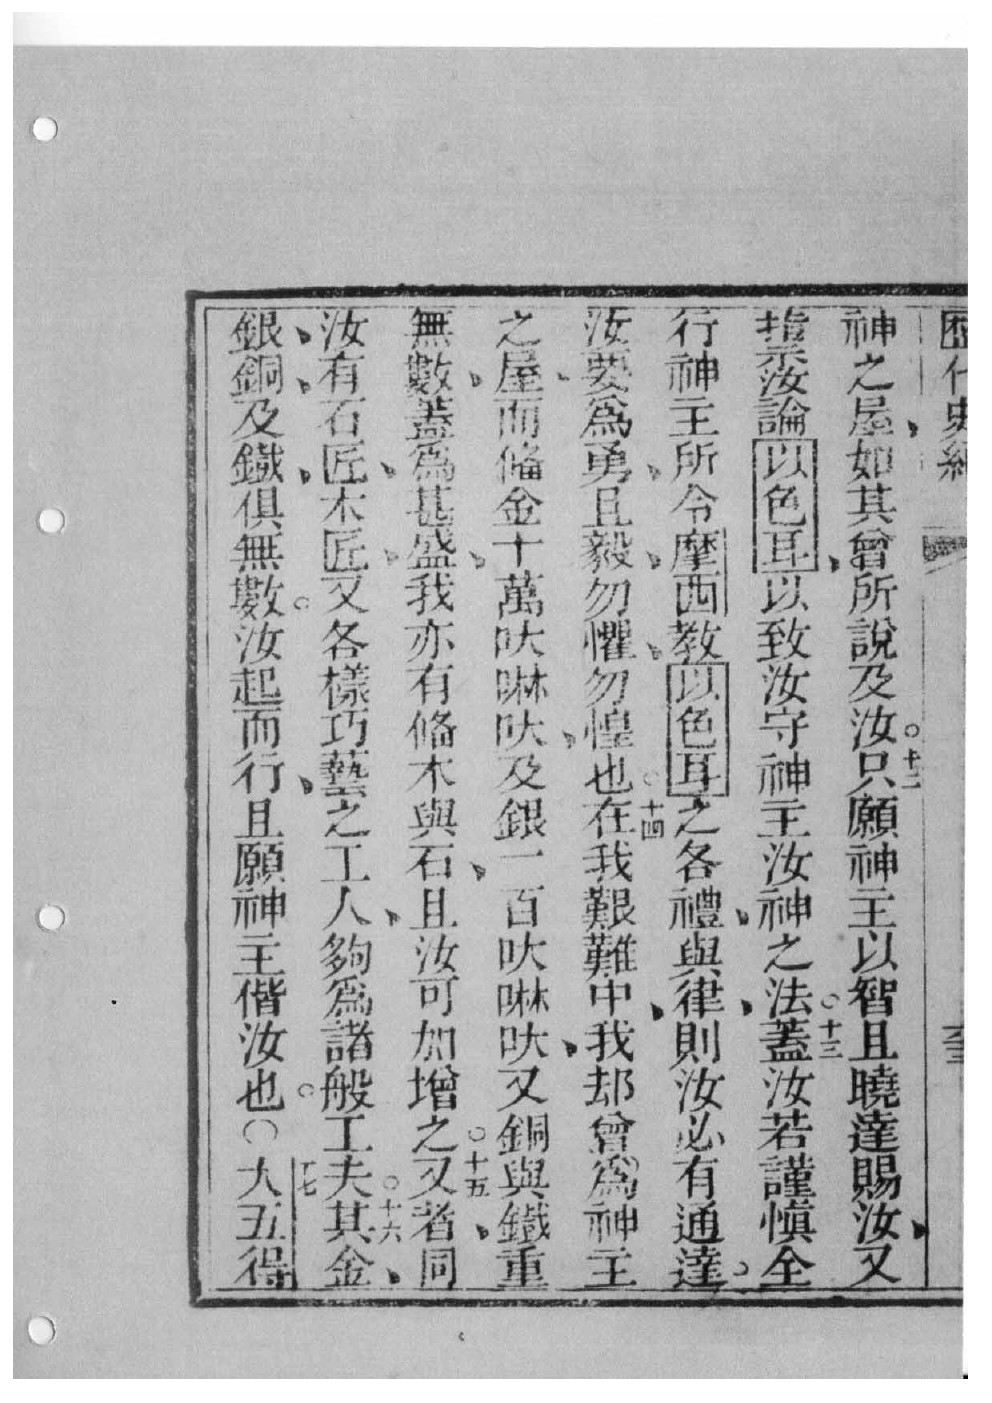 歴代史紀
神之屋、如其曾所說及汝。十二只願神主以智且曉達賜汝、又
指示汝論以色耳、以致汝守神主汝神之法。十三蓋汝若謹愼全
行神主所令摩西教以色耳之各禮、與律、則汝必有通達。
汝要爲勇、且毅、勿懼、勿惶也。十四在我艱難中、我却曾爲神主
之屋、而俻金十萬吠啉吠、及銀一百吠啉吠、又銅與鐵、重
無數、蓋爲甚盛、我亦有俻木與石、且汝可加增之。十五又者同
汝有石匠、木匠、又各樣巧藝之工人、夠爲諸般工夫。十六其金、
銀、銅、及鐵、俱無數。汝起而行、且願神主偕汝也。〇十七大五得